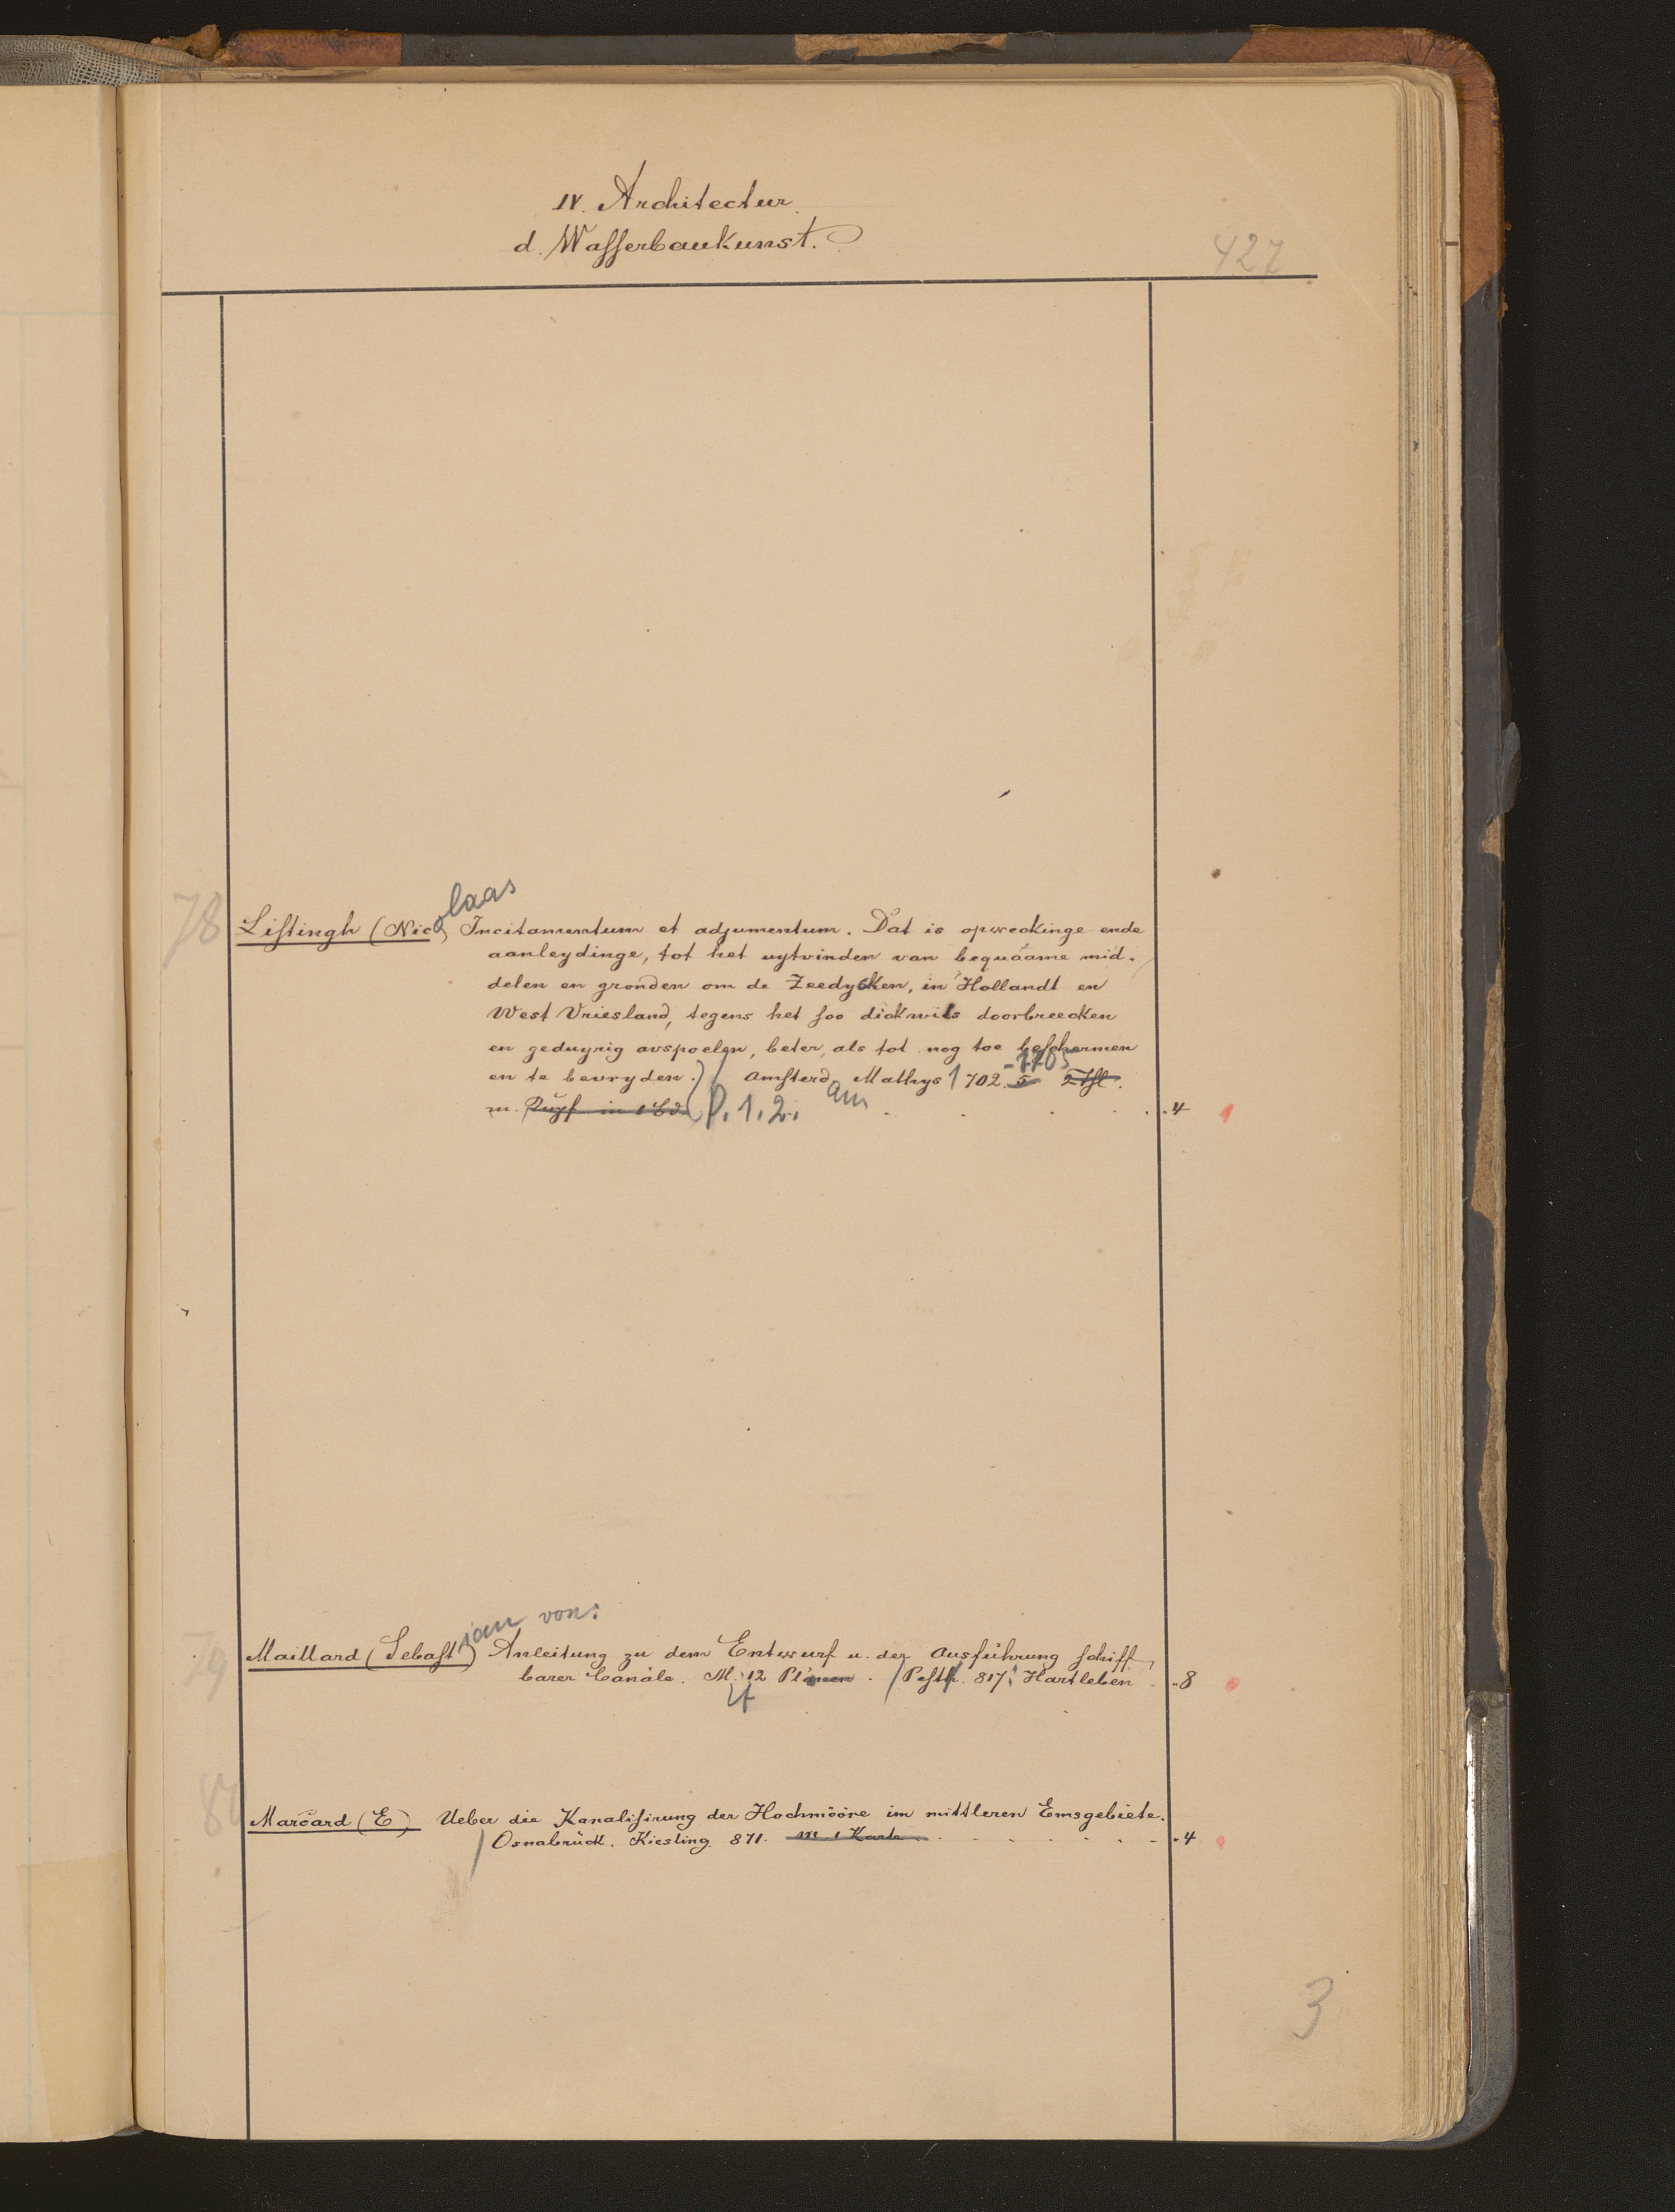 IV. Architectur.
d. Waſſerbaukunst.
427
78
Liſtingh (Nicolaas) Incitamentum et adjumentum. Dat is opweckinge ende
aanleydinge, tot het uytvinden van bequaame mid-
delen en gronden om de Zeedycken, in Hollandt en
West Vriesland, tegens het ſoo dickwils doorbreecken
en geduyrig avspoelen, beter, als tot nog toe beſchermen
en te bevryden. Amſterd. Mathys 1702. -1705 5 Thl.
m. in 1 Bd. P. 1. 2. 4 1
79
Maillard (Sebaſtian von: Anleitung zu dem Entwurf u. der Ausführung ſchiff-
barer Canäle. M. 12 Plänen. Peſth. 817. Hartleben 8
80
Marcard (E) Ueber die Kanaliſirung der Hochmööre im mittleren Emsgebiete.
Osnabrück. Kiesling. 871. m 1 Karte 4
3